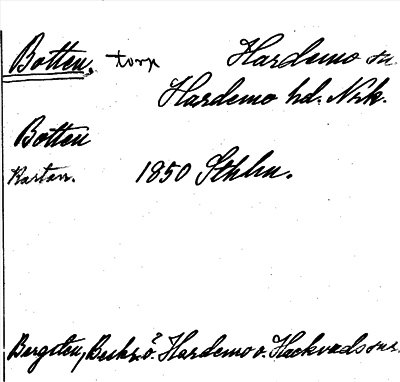 Botten. torp Hardemo sn.
Hardemo hd. Nrk.
Botten
Kartan. 1850 Sthlm.
Bergsten, Beskr. ö. Hardemo o. Hackvads snr.